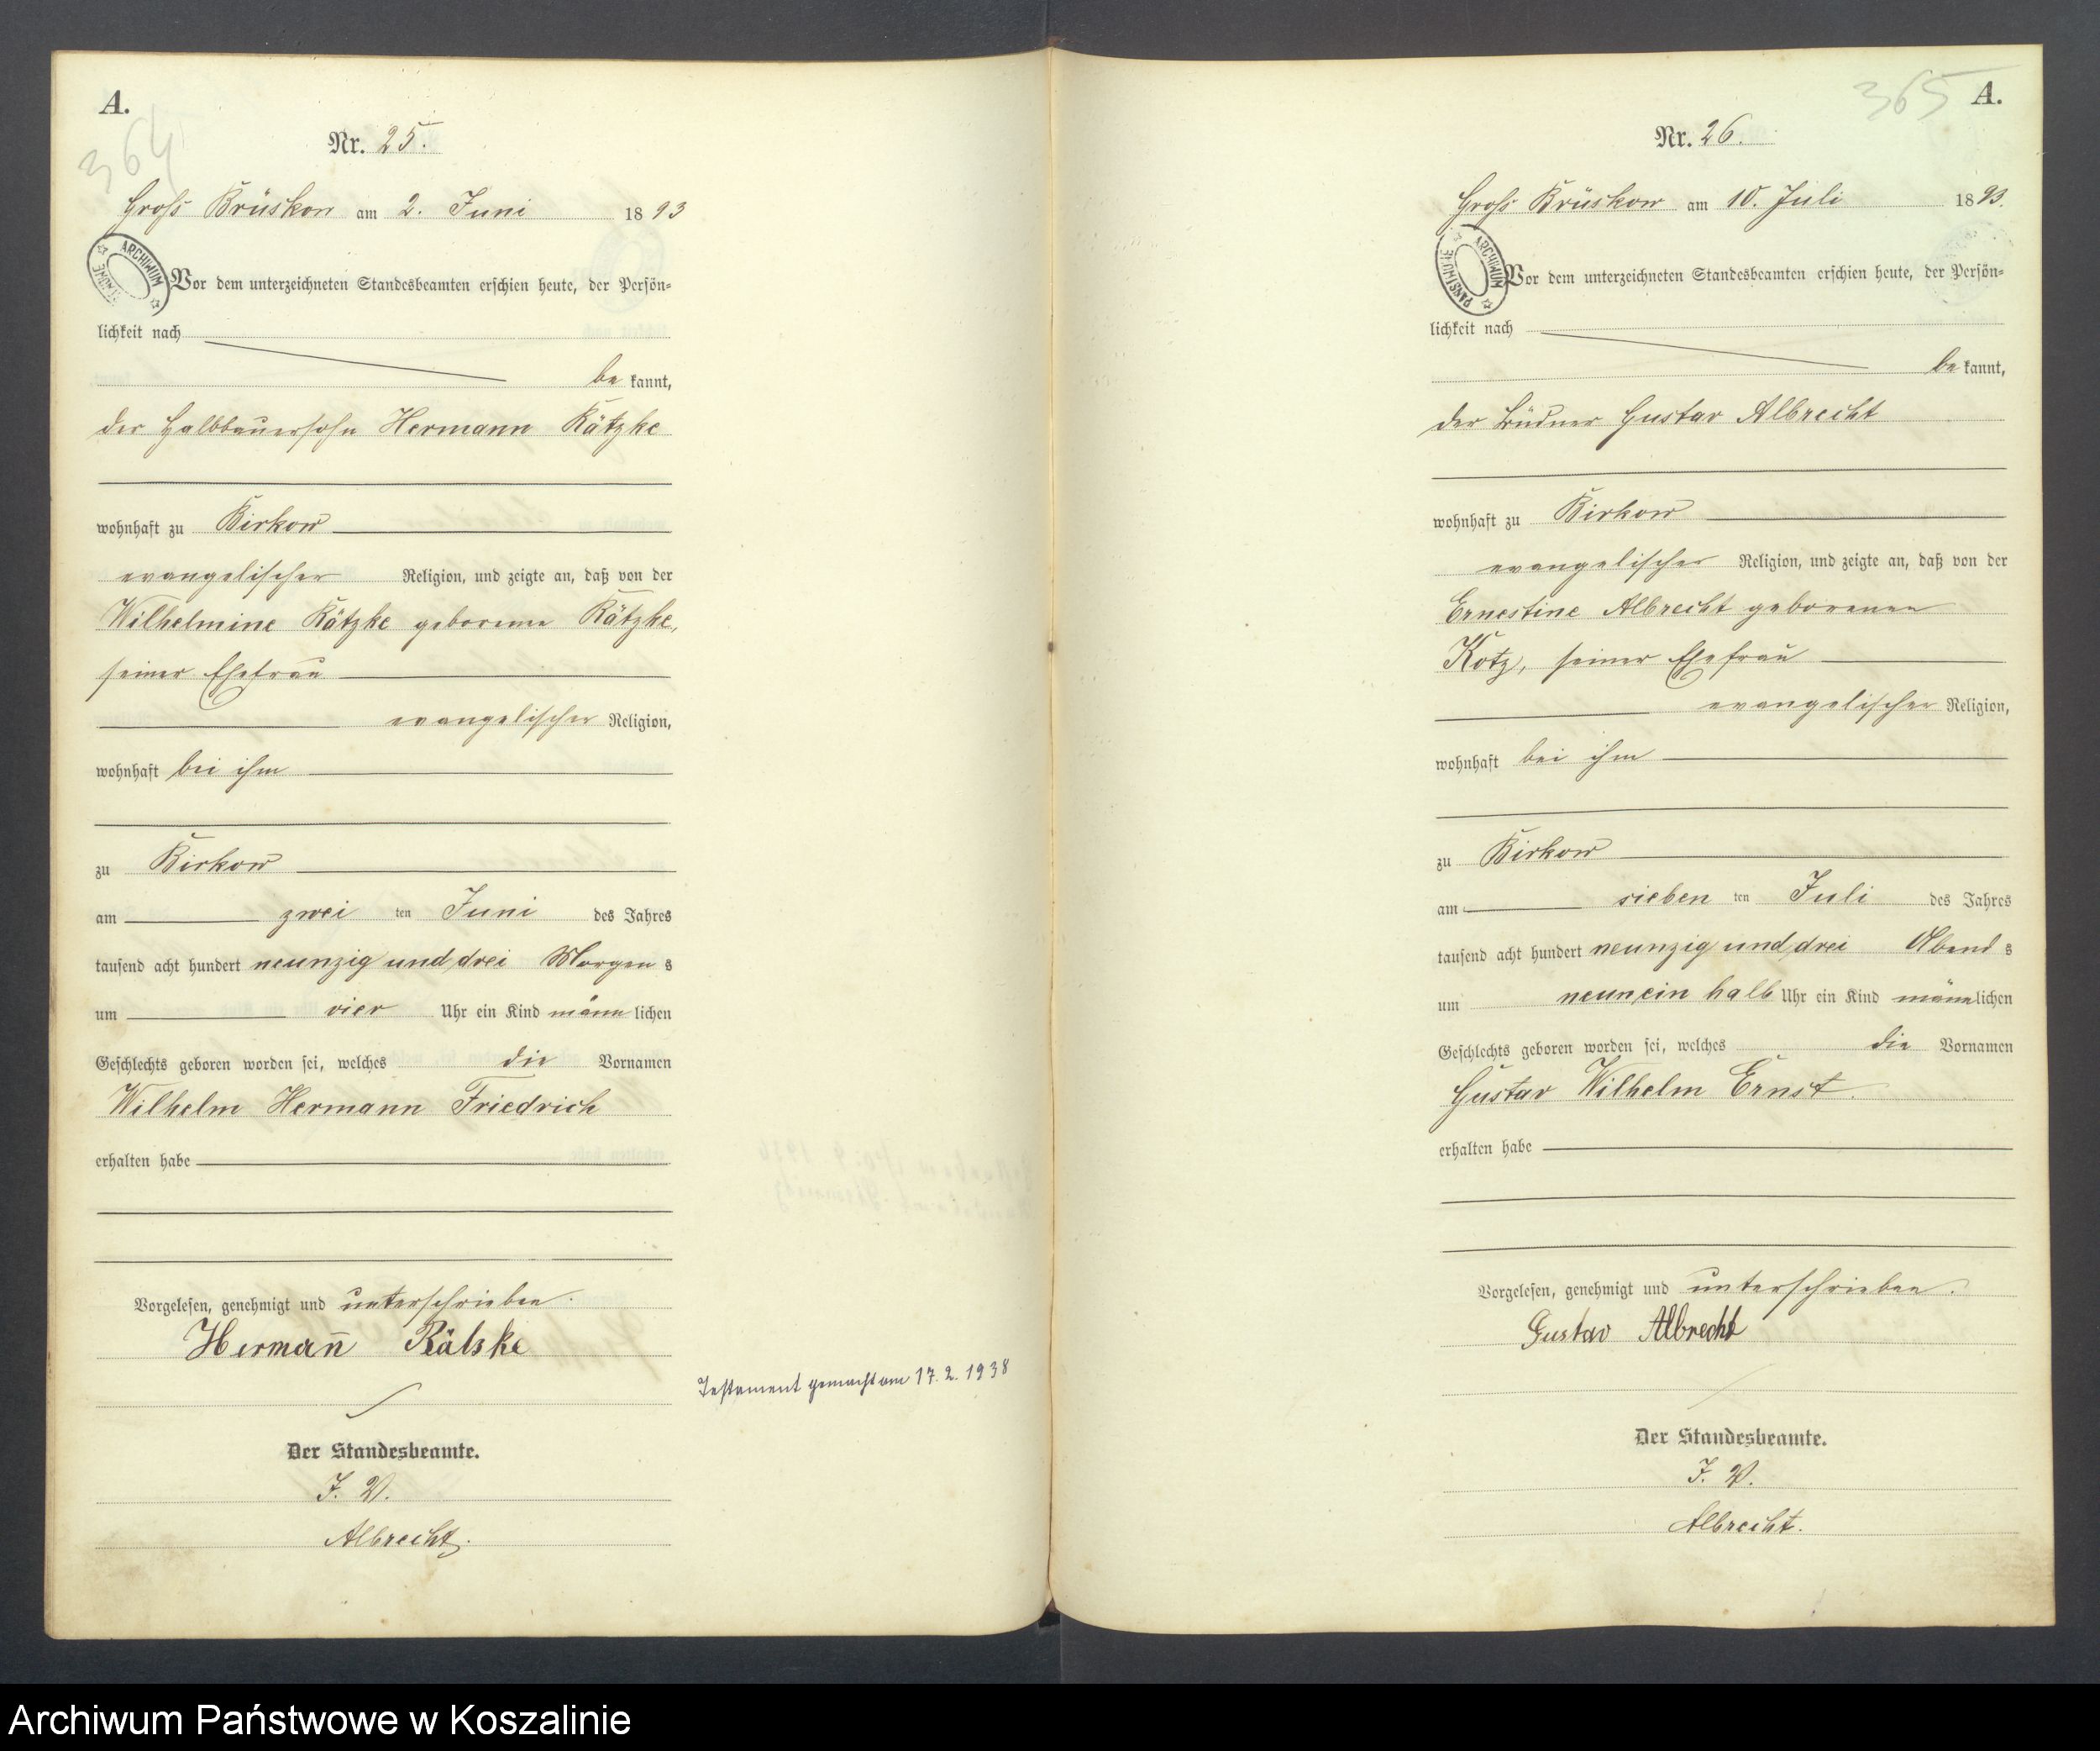 A.
364
Nr. 25.
Gross Brüskow am 2. Juni 1893
ARCHIWUM
Vor dem unterzeichneten Standesbeamten erschien heute, der Persön=
lichkeit nach
be kannt,
der Halbbauersohn Hermann Rätzke
wohnhaft zu Birkow
evangelischer Religion, und zeigte an, daß von der
Wilhelmine Rätzke geborene Rätzke,
seiner Ehefrau
evangelischer Religion,
wohnhaft bei ihm
zu Birkow
am zwei ten Juni des Jahres
tausend acht hundert neunzig und drei Morgens
um vier Uhr ein Kind männlichen
Geschlechts geboren worden sei, welches die Vornamen
Wilhelm Hermann Friedrich
erhalten habe
Vorgelesen, genehmigt und unterschrieben.
Hermañ Rätske
Testament gemacht am 17. 2. 1938
Der Standesbeamte.
J. V.
Albrecht.
365 A.
Nr. 26.
Gross Brüskow am 10. Juli 1893.
ARCHIWUM PAŃSTWOWE
Vor dem unterzeichneten Standesbeamten erschien heute, der Persön=
lichkeit nach
be kannt,
der Büdner Gustav Albrecht
wohnhaft zu Birkow
evangelischer Religion, und zeigte an, daß von der
Ernestine Albrecht geborenen
Kotz, seiner Ehefrau
evangelischer Religion,
wohnhaft bei ihm
zu Birkow
am sieben ten Juli des Jahres
tausend acht hundert neunzig und drei Abends
um neunein halb Uhr ein Kind männlichen
Geschlechts geboren worden sei, welches die Vornamen
Gustav Wilhelm Ernst.
erhalten habe
Vorgelesen, genehmigt und unterschrieben.
Gustav Albrecht
Der Standesbeamte.
J. V.
Albrecht.
Archiwum Państwowe w Koszalinie